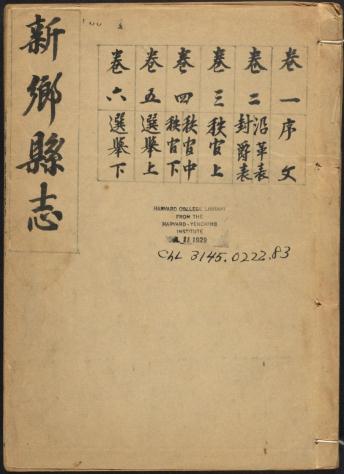 新鄉縣志
卷一 序文
卷二 沿革表 封爵表
卷三 秩官上
卷四 秩官中 秩官下
卷五 選舉上
卷六 選舉下
HARVARD COLLEGE LIBRARY
FROM THE
HARVARD-YENCHING
INSTITUTE
1929
ChL 3145.0222.83